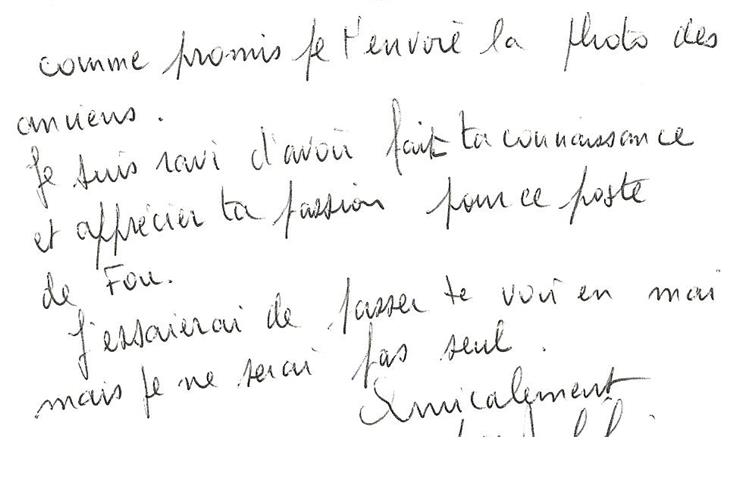 comme promis je t'envoie la photo des
anciens.
Je suis ravi d'avoir fait ta connaissance
et apprécier ta passion pour ce poste
de Fou.
J'essaierai de passer te voir en mai
mais je ne serai pas seul.
Amicalement